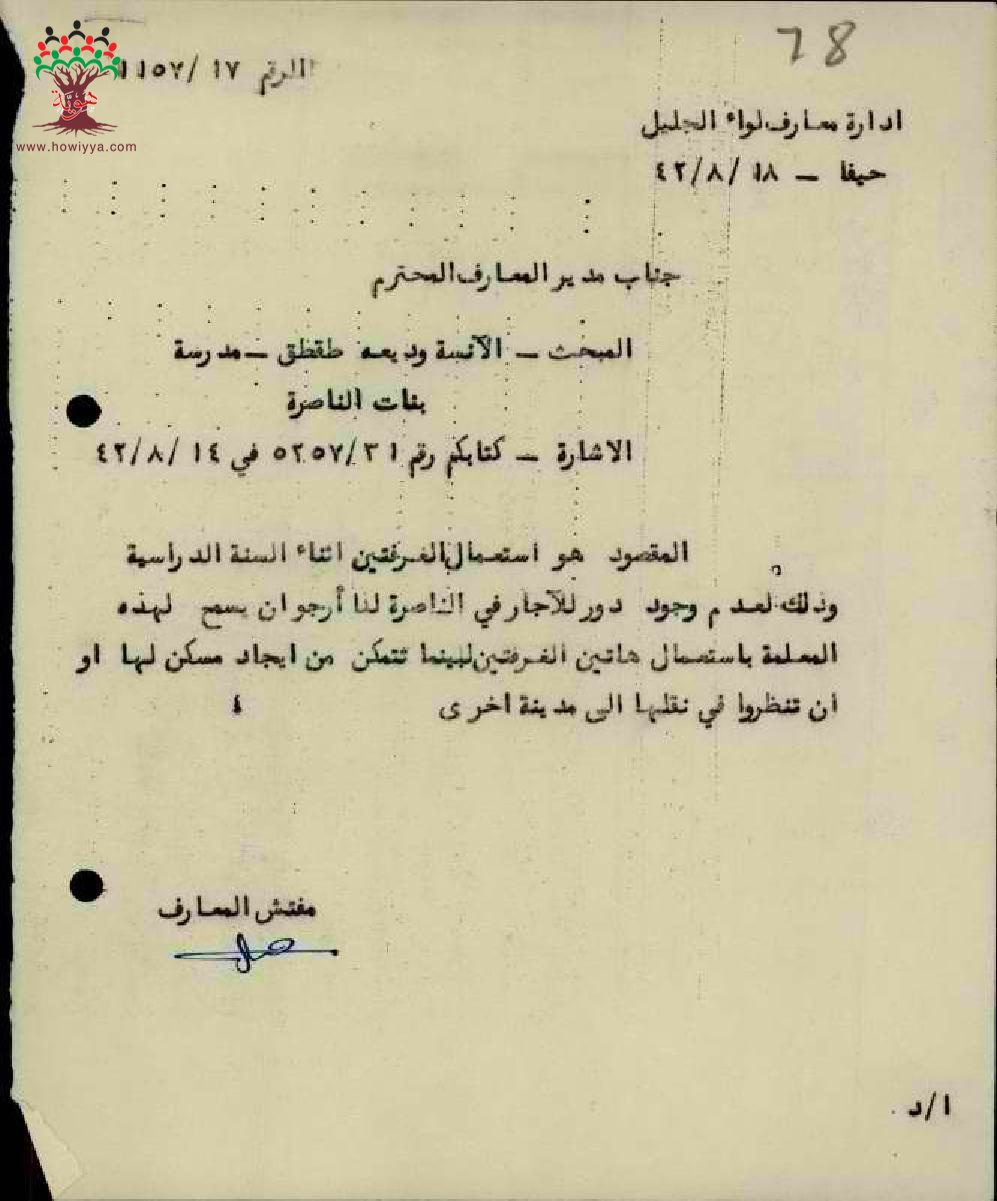 78
الرقم ١٧ /١١٥٧
هوية
www.howiyya.com
ادارة معارف لواء الجليل
حيفا – ١٨ /٨ /٤٢
جناب مدير المعارف المحترم
المبحث – الآنسة وديعه طقطق – مدرسة
بنات الناصرة
الاشارة – كتابكم رقم ٣١ /٥٢٥٧ في ١٤ /٨ /٤٢
المقصود هو استعمال الغرفتين اثناء السنة الدراسية
وذلك لعدم وجود دور للآجار في الناصرة لذا أرجو ان يسمح لهذه
المعلمة باستعمال هاتين الغرفتين لبينما تتمكن من ايجاد مسكن لها او
ان تنظروا في نقلها الى مدينة اخرى ٤
مفتش المعارف
ا/د .